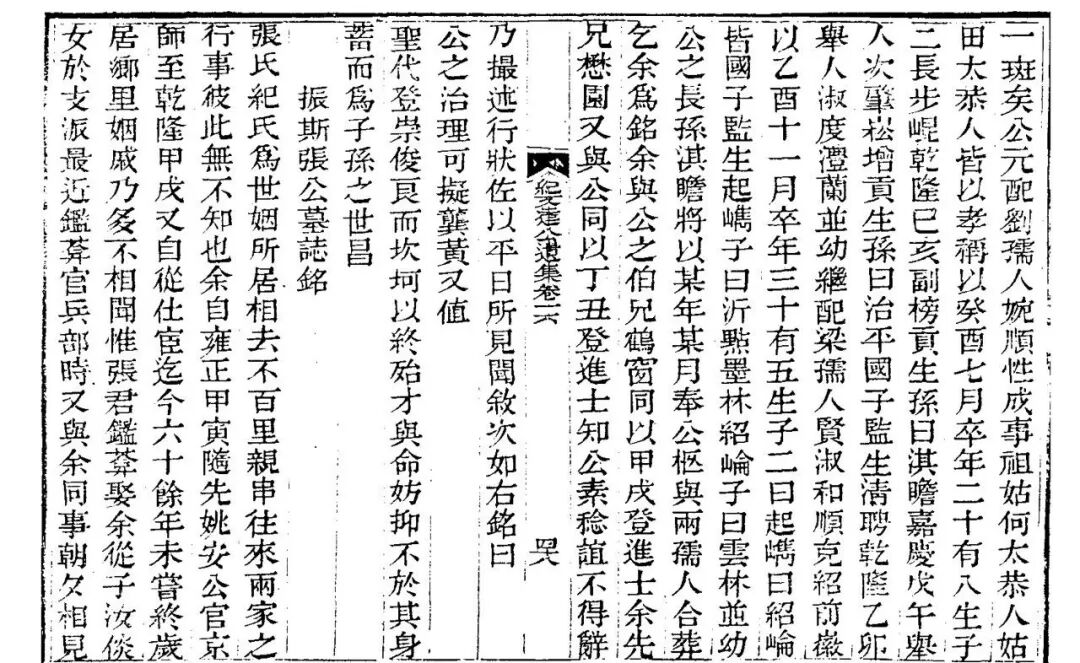 一斑矣公元配劉孺人婉順性成事祖姑何太恭人姑
田太恭人皆以孝稱以癸酉七月卒年二十有八生子
二長步崐乾隆己亥副榜貢生孫曰淇瞻嘉慶戊午舉
人次肇崧增貢生孫曰治平國子監生淸聘乾隆乙卯
舉人淑度澧蘭並幼繼配梁孺人賢淑和順克紹前徽
以乙酉十一月卒年三十有五生子二曰起嶲曰紹崘
皆國子監生起嶲子曰沂㸃墨林紹崘子曰雲林並幼
公之長孫淇瞻將以某年某月奉公柩與兩孺人合葬
乞余爲銘余與公之伯兄鶴窗同以甲戌登進士余先
兄懋園又與公同以丁丑登進士知公素稔誼不得辭
紀文達公遺集卷十六
四六
乃撮述行狀佐以平日所見聞敘次如右銘曰
公之治理可擬龔黃又值
聖代登崇俊良而坎坷以終殆才與命妨抑不於其身
蓄而爲子孫之世昌
振斯張公墓誌銘
張氏紀氏爲世姻所居相去不百里親串往來兩家之
行事彼此無不知也余自雍正甲寅隨先姚安公官京
師至乾隆甲戌又自從仕宦迄今六十餘年未嘗終歲
居鄉里姻戚乃多不相聞惟張君鑑莽娶余從子汝倓
女於支派最近鑑莽官兵部時又與余同事朝夕相見